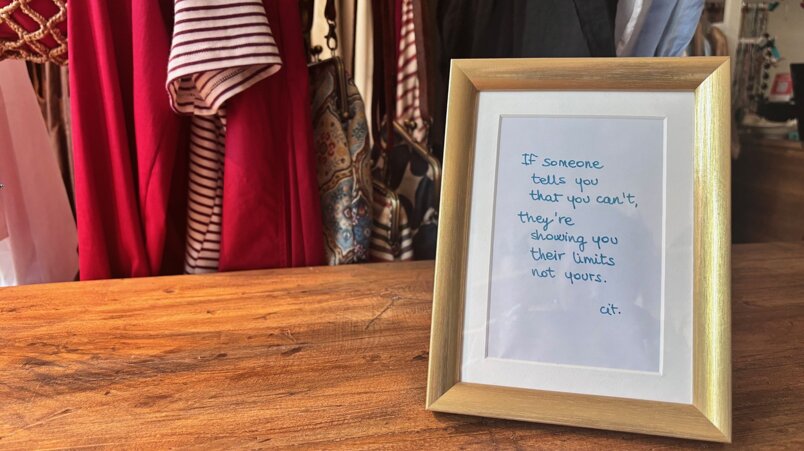 If someone
tells you
that you can't,
they're
showing you
their limits
not yours.
cit.